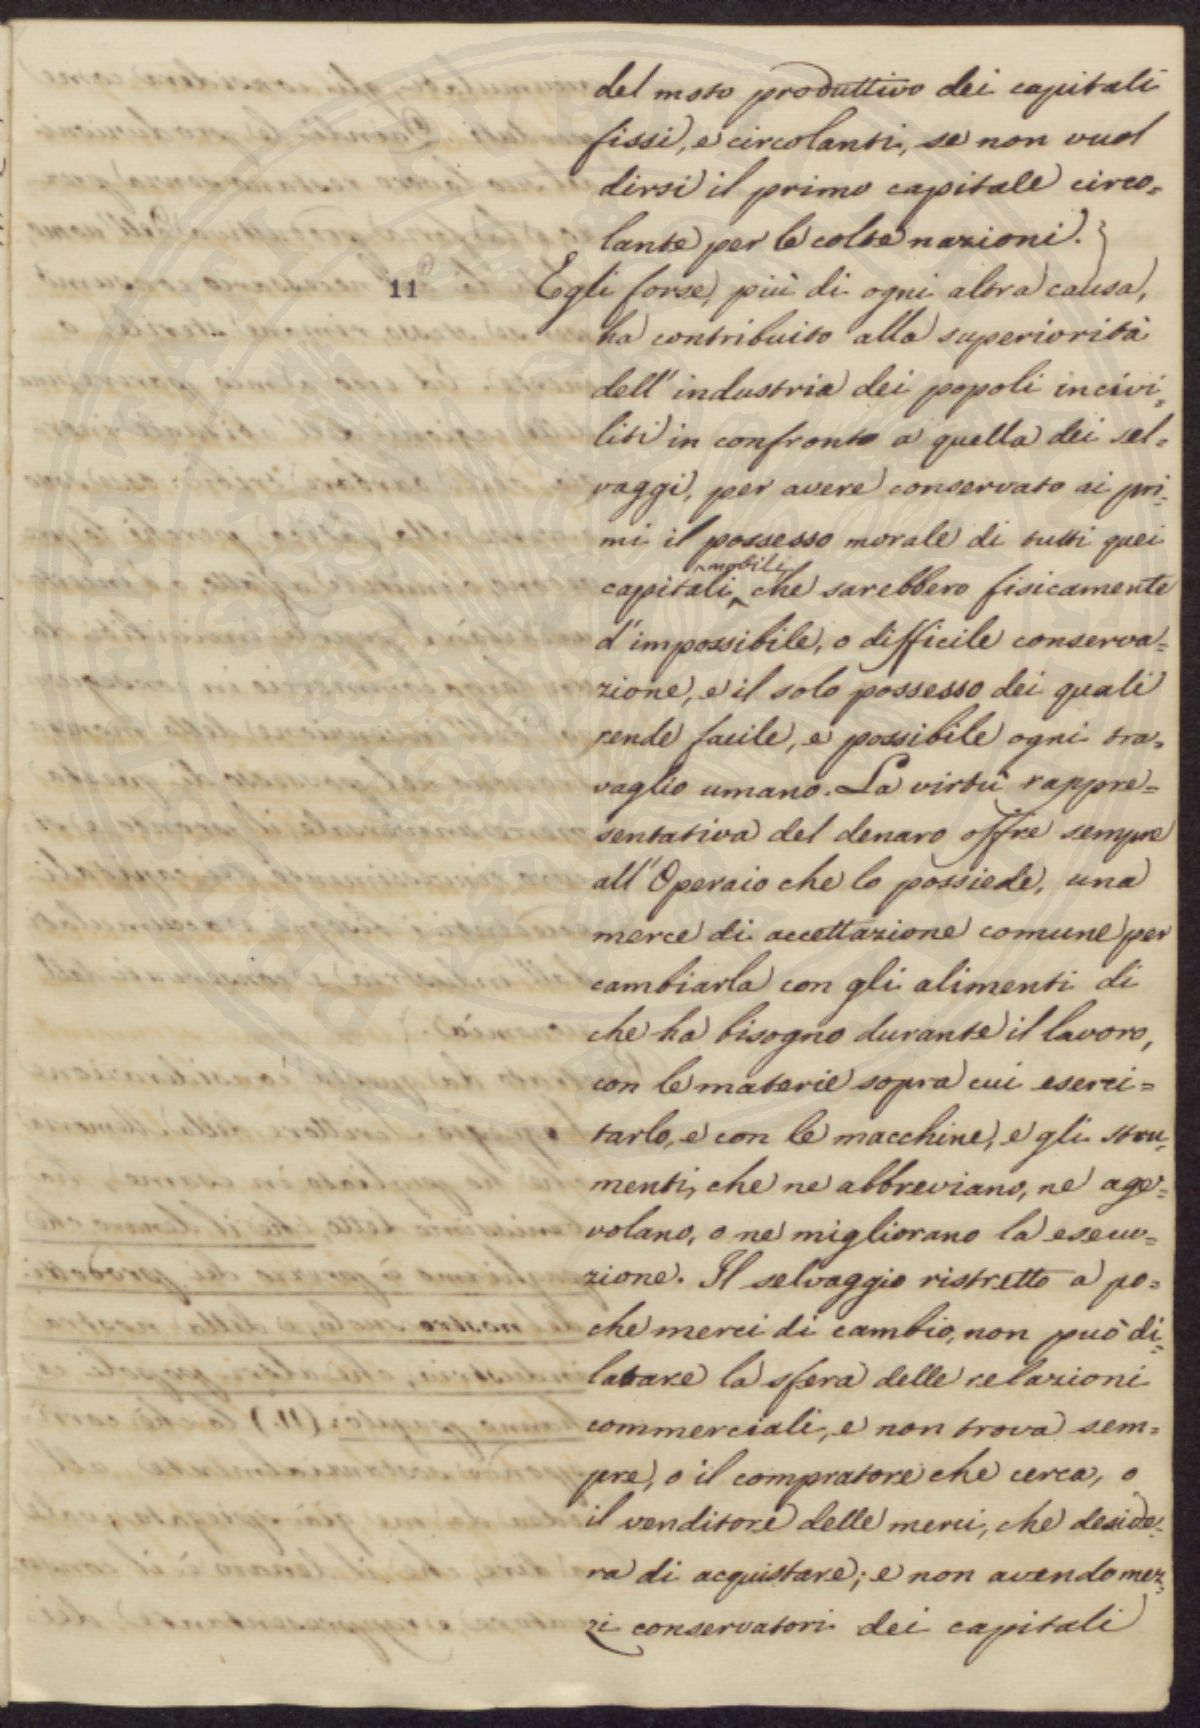 del moto produttivo dei capitali
fissi, e circolanti, se non vuol
dirsi il primo capitale circo=
lante per le colte nazioni.
11 Egli forse, più di ogni altra causa,
ha contribuito alla superiorità
dell'industria dei popoli incivi=
liti in confronto a quella dei sel=
vaggi, per avere conservato ai pri=
mi il possesso morale di tutti quei
mobili
capitali che sarebbero fisicamente
d'impossibile, o difficile conserva=
zione, e il solo possesso dei quali
rende facile, e possibile ogni tra=
vaglio umano. La virtù rappre=
sentativa del denaro offre sempre
all'Operaio che lo possiede, una
merce di accettazione comune per
cambiarla con gli alimenti di
che ha bisogno durante il lavoro,
con le materie sopra cui eserci=
tarlo, e con le macchine, e gli stru=
menti, che ne abbreviano, ne age=
volano, o ne migliorano la esecu=
zione. Il selvaggio ristretto a po=
che merci di cambio, non può di=
latare la sfera delle relazioni
commerciali, e non trova sem=
pre, o il compratore che cerca, o
il venditore delle merci, che deside=
ra di acquistare; e non avendo mez=
zi conservatori dei capitali